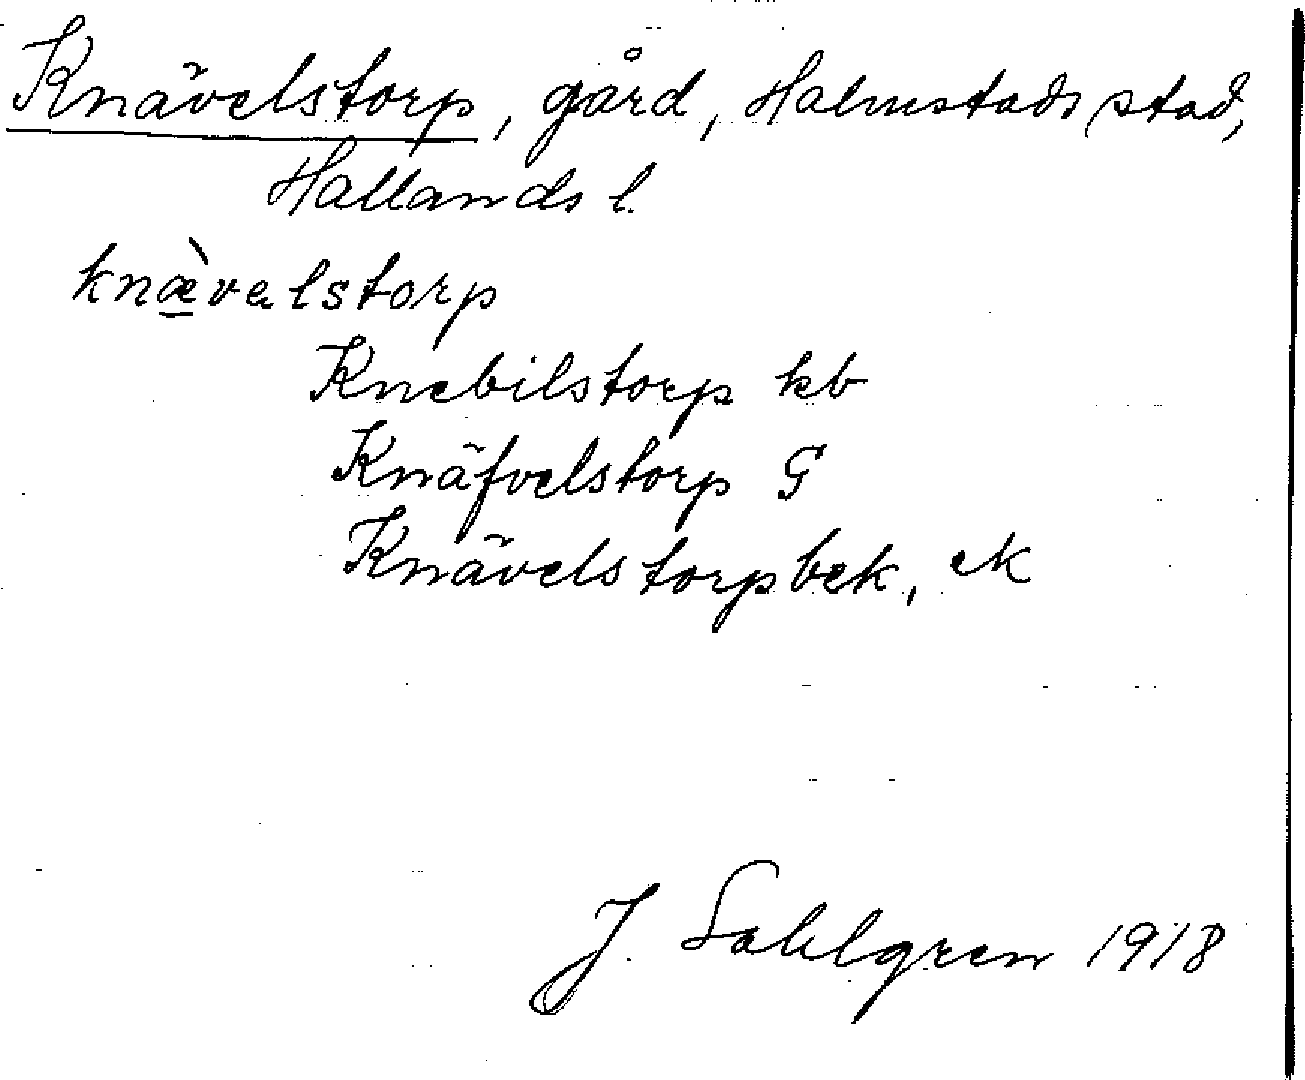 Knävelstorp, gård, Halmstads stad,
Hallands l.
knæ̀vəlstorp
Knebilstorp kb
Knäfvelstorp G
Knävelstorpbek, eK
J. Sahlgren 1918